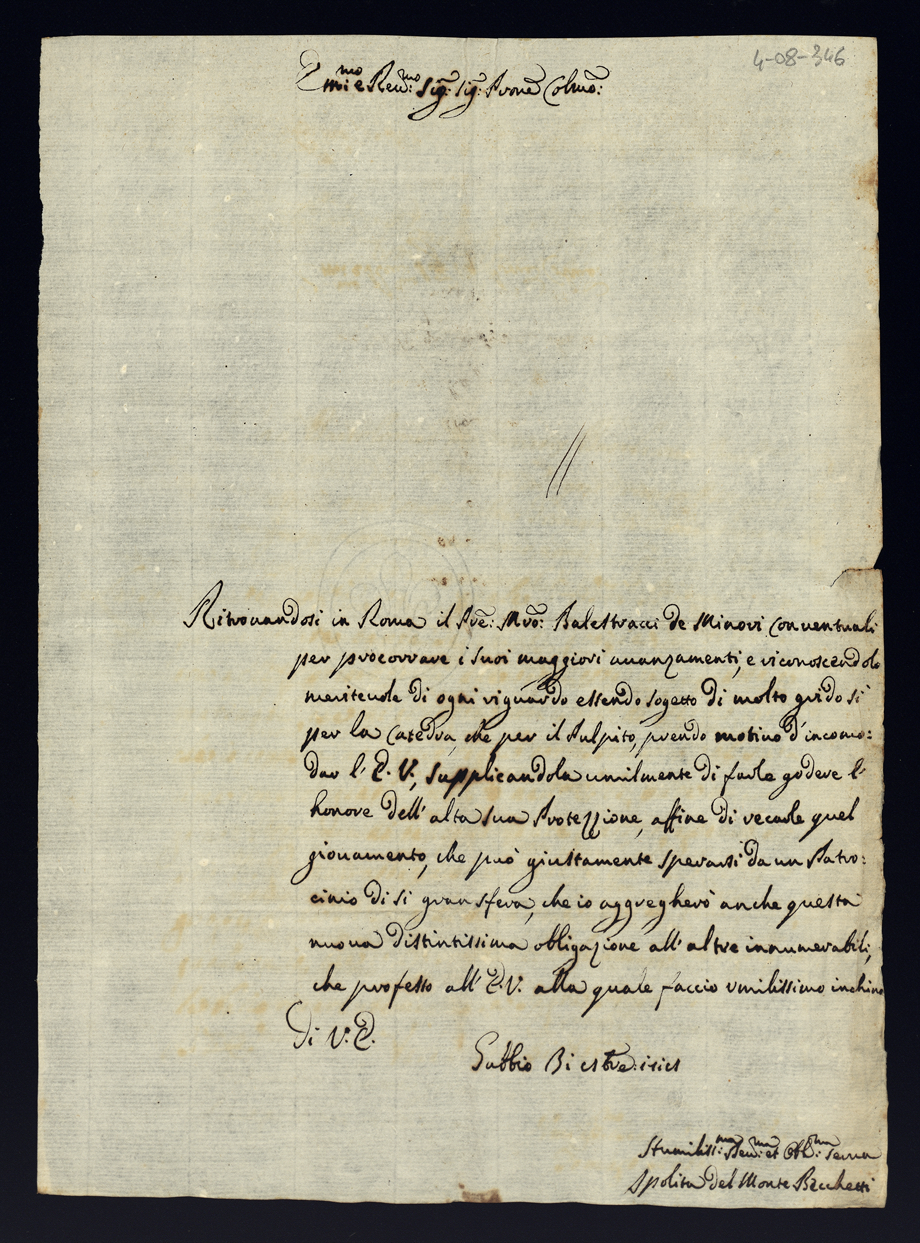 4-08-346
Emi.mo e Reu.mo Sig.r Sig.r Prone Colmo:
Ritrouandosi in Roma il Pre: Mro: Balestracci de Minori Conuentuali
per procorrare i suoi maggiori auanzamenti, e riconoscendolo
meriteuole di ogni riguardo essendo sogetto di molto grido si
per la Catedra, che per il Pulpito, prendo motiuo d'incomo:
dar l' E. V., supplicandola umilmente di farle godere l'
honore dell' alta sua Protezzione, affine di recarle quel
giouamento, che può giustamente sperarsi da un Patro:
cinio di si gran sfera, che io aggregherò anche questa
nuoua distintissima obligazione all' altre innumerabili,
che professo all' E. V. alla quale faccio umilissimo inchino
Di V. E.
Gubbio
Humiliss.ma Deu.ma et Obl.ma Serua
Ipolita del Monte Becchetti